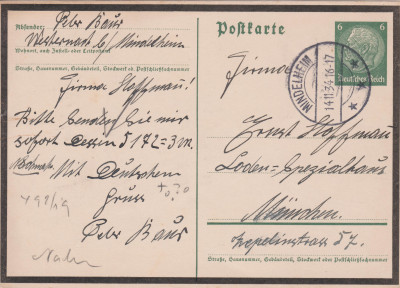 Absender: Peter Baur
Westernach b/ Mindelheim
Wohnort, auch Zustell- oder Leitpostamt
Straße, Hausnummer, Gebäudeteil, Stockwerk od. Postschließfachnummer
Firma Hoffmann!
Bitte senden Sie mir
sofort Dessin 5172 = 3 m.
Mit Deutschem
Gruss
Peter Baur
Postkarte
6 6
Deutsches Reich
MINDELHEIM
14.11.34.16-17
Firma
Ernst Hoffmann
Loden-Spezialhaus
München.
Zeppelinstrasse 57.
Straße, Hausnummer, Gebäudeteil, Stockwerk oder Postschließfachnummer